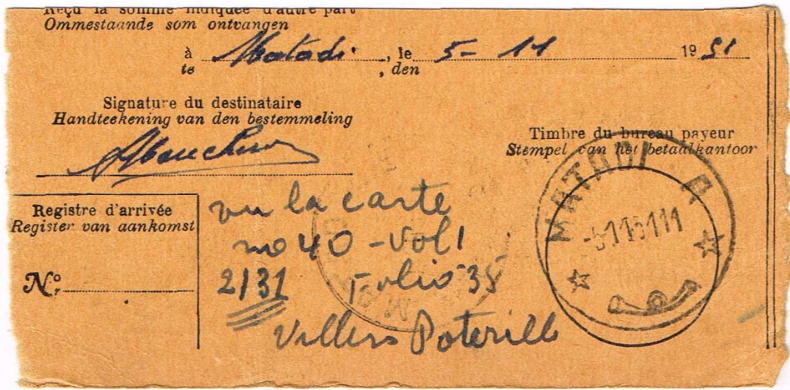 Reçu la somme indiquée d'autre part
Ommestaande som ontvangen
à Matadi, le 5-11 1951
te , den
Signature du destinataire
Handteekening van den bestemmeling
Timbre du bureau payeur
Stempel van het betaalkantoor
MATADI A
Registre d'arrivée
Register van aankomst
No
vu la carte
no 40 - Vol 1
2131 Folio 35
Villers Poterie